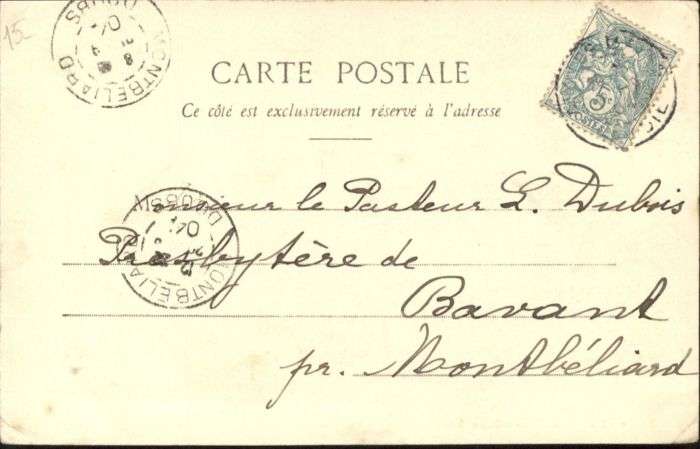 15
MONTBELIARD DOUBS
04
CARTE POSTALE
Ce côté est exclusivement réservé à l'adresse
5c
POSTES
Monsieur le Pasteur L. Dubois
Presbytère de
Bavant
pr. Montbéliard
MONTBELIARD DOUBS
04